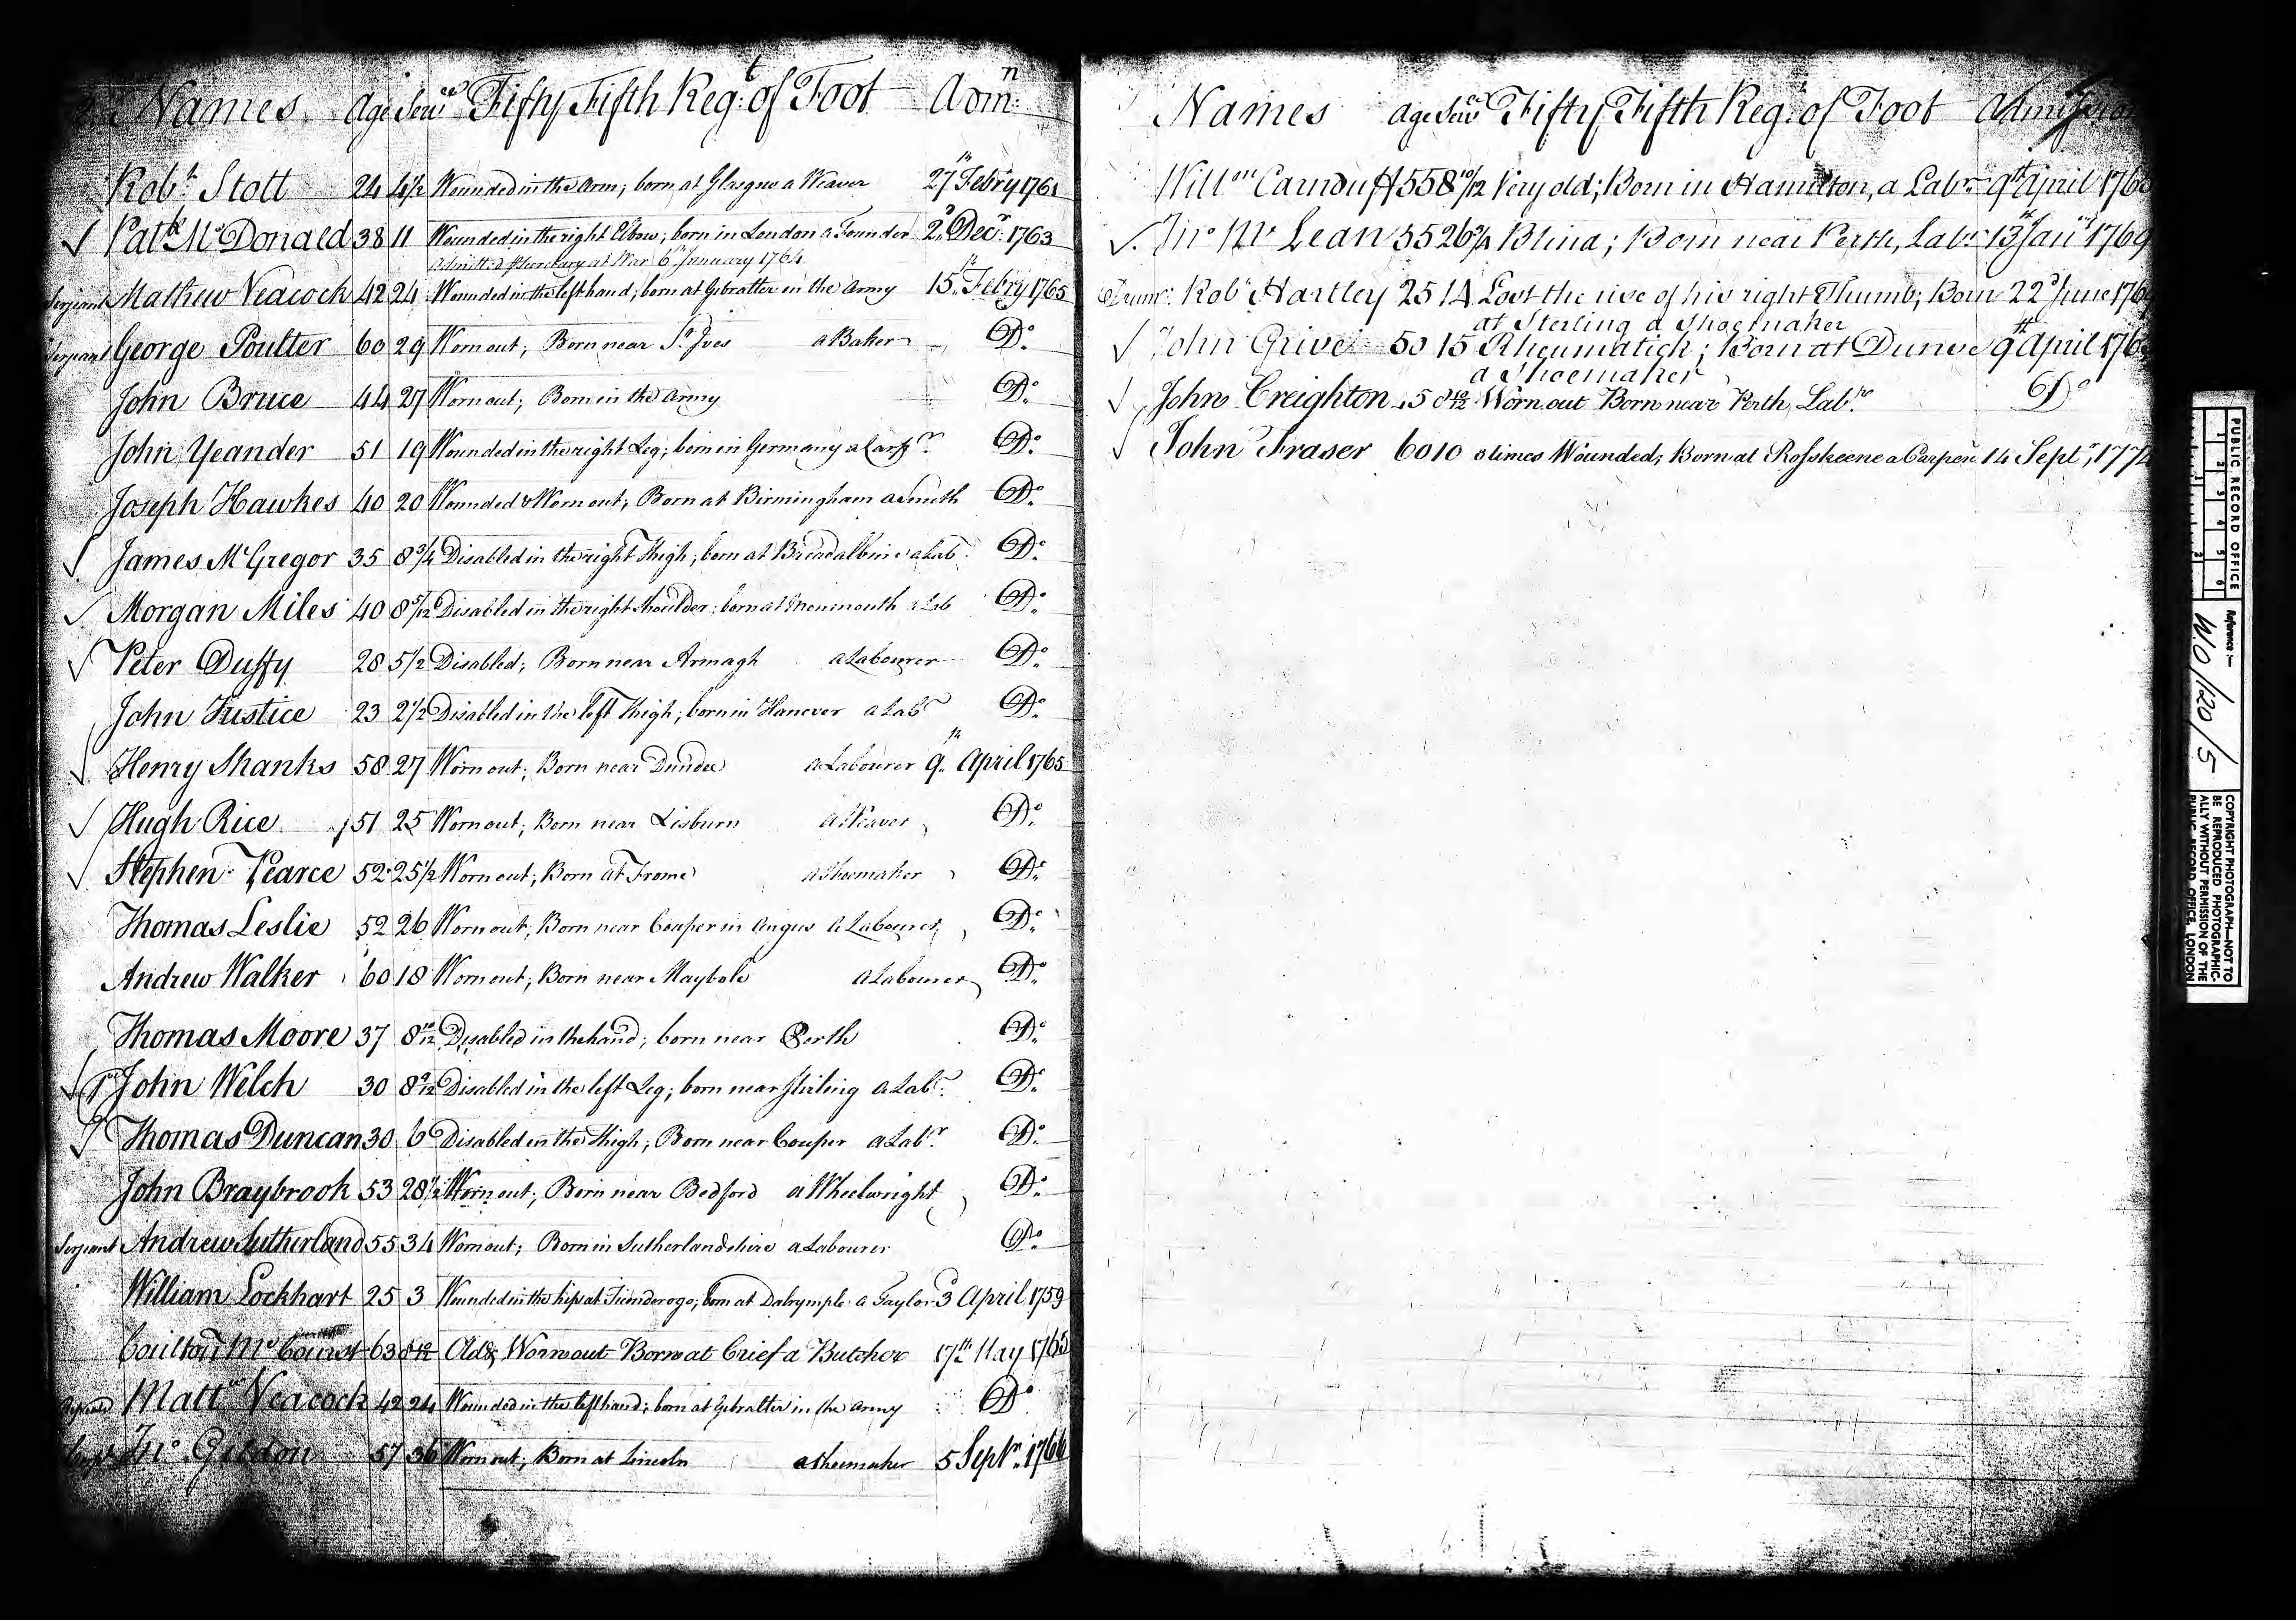 Names Age Serv.ce Fifty Fifth Reg.t of Foot Adm.n
Rob.t Stott 24 4½ Wounded in the Arm; born at Glasgow a Weaver 27th Febry 1761
Pat.k McDonald 38 11 Wounded in the right Elbow; born in London a Founder 2d Decr. 1763
Admitted Secretary at War 6th January 1764
Serjeant Mathew Veacock 42 24 Wounded in the left hand; born at Gibralter in the Army 15th Febry 1765
Serjeant George Poulter 60 29 Worn out; Born near St. Ives a Baker Do.
John Bruce 44 27 Worn out; Born in the Army Do.
John Yeander 51 19 Wounded in the right Leg; born in Germany a Carpr. Do.
Joseph Hawkes 40 20 Wounded & Worn out; Born at Birmingham a Smith Do.
James McGregor 35 8¾ Disabled in the right Thigh; born at Breadalbine a Labr. Do.
Morgan Miles 40 8 5/12 Disabled in the right Shoulder; born at Monmouth a Lab Do.
Peter Duffy 28 5½ Disabled; Born near Armagh a Labourer Do.
John Justice 23 2½ Disabled in the left Thigh; born in Hanover a Labr. Do.
Henry Shanks 58 27 Worn out; Born near Dundee a Labourer 9th April 1765
Hugh Rice 51 25 Worn out; Born near Lisburn a Weaver Do.
Stephen Pearce 52 25½ Worn out; Born at Frome a Shoemaker Do.
Thomas Leslie 52 26 Worn out; Born near Couper in Angus a Labourer Do.
Andrew Walker 60 18 Worn out; Born near Maybole a Labourer Do.
Thomas Moore 37 8 10/12 Disabled in the hand; born near Perth Do.
John Welch 30 8 9/12 Disabled in the left Leg; born near Stirling a Labr. Do.
Thomas Duncan 30 6 Disabled in the Thigh; Born near Couper a Labr. Do.
John Braybrook 53 28½ Worn out; Born near Bedford a Wheelwright Do.
Serjeant Andrew Sutherland 55 34 Worn out; Born in Sutherlandshire a Labourer Do.
William Lockhart 25 3 Wounded in the hip at Ticonderogo; born at Dalrymple a Taylor 3d April 1759
63 Old & Worn out Born at Crief a Butcher 17th May 1765
Matt.w Veacock 42 24 Wounded in the left hand; born at Gibralter in the Army Do
Jno. 57 36 Worn out; Born at Lincoln a Shoemaker 5 Septr. 1766
Names Age Serv.ce Fifty Fifth Reg.t of Foot Admission
Will.m Carnduff 55 8 10/12 Very old; Born in Hamilton, a Labr. 9th April
Jno. Mc Lean 55 26¾ Blind; Born near Perth, Labr. 13th Jany 1769
Drumr. Robt. Hartley 25 14 Lost the use of his right Thumb; Born 22d June
at Sterling a Shoemaker
John Grive 50 15 Rheumatick; Born at Dunse 9th April
a Shoemaker
John Creighton Worn out Born near Perth, Labr. Do
John Fraser 60 10 times Wounded; Born at Rosskeene a Carpenr 14 Septr. 177
PUBLIC RECORD OFFICE
1 2 3 4 5 6
1 2
Reference:—
W.O/120/5
COPYRIGHT PHOTOGRAPH—NOT TO
BE REPRODUCED PHOTOGRAPHIC-
ALLY WITHOUT PERMISSION OF THE
PUBLIC RECORD OFFICE, LONDON